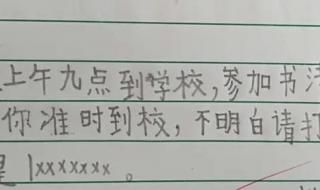 上午九点到学校,参加书法
你准时到校,不明白请打
是 1xxxxxxx。